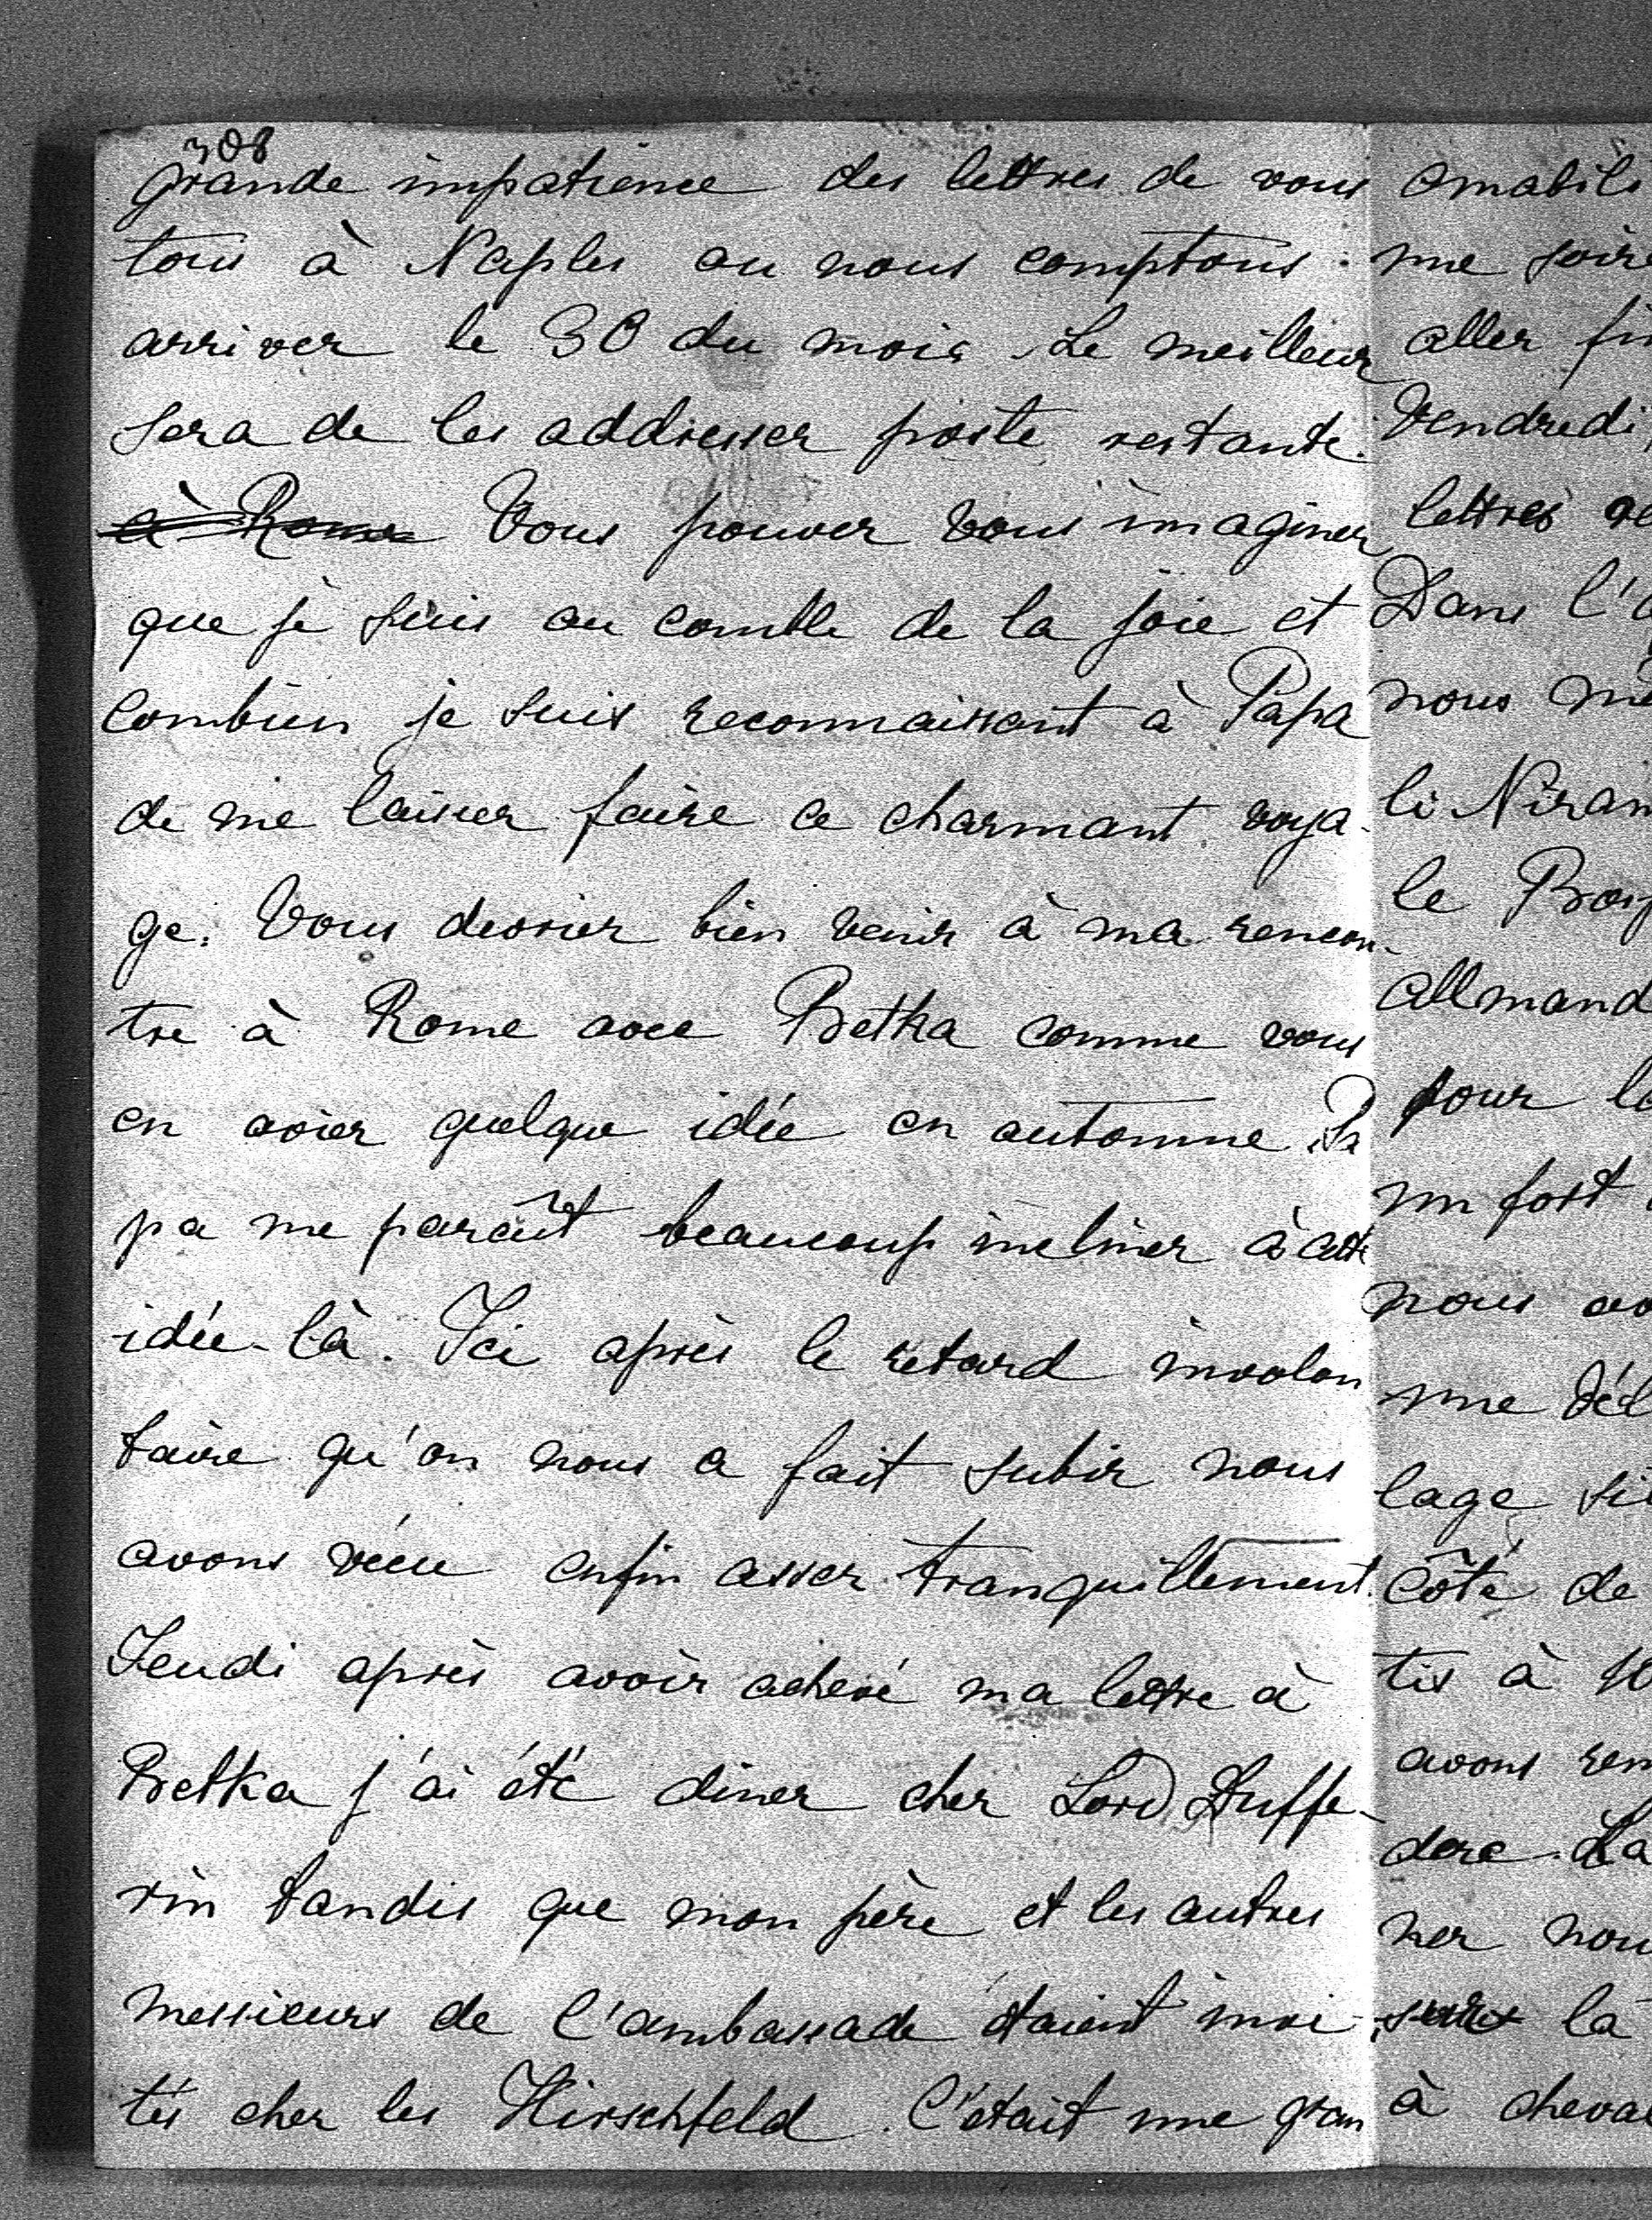 308
grande impatience des lettres de vous
tous à Naples ou nous comptons
arriver le 30 du mois. Le meilleur
sera de les addresser poste restante.
à Rome Vous pouvez vous imaginer
que je suis au comble de la joie et
combien je suis reconnaissant à Papa
de me laisser faire ce charmant voya-
ge. Vous devriez bien venir à ma rencon-
tre à Rome avec Betka comme vous
en aviez quelque idée en automne Pa
pa me paraît beaucoup incliner à cette
idée-là. Ici après le retard involon
taire qu'on nous a fait subir nous
avons vécu enfin assez tranquillement.
Jeudi après avoir achevé ma lettre à
Betka j'ai été diner chez Lord Duffe-
rin tandis que mon père et les autres
messieurs de l'ambassade étaient invi-
tés chez les Hirschfeld. C'était une gran
amabili
une soiré
aller
Vendredi
lettres
Dans l'
nous
li
le
allmand
pour
un fort
nous
une
lage
côté de
tis à
avons
dere. La
ner
la
à cheval